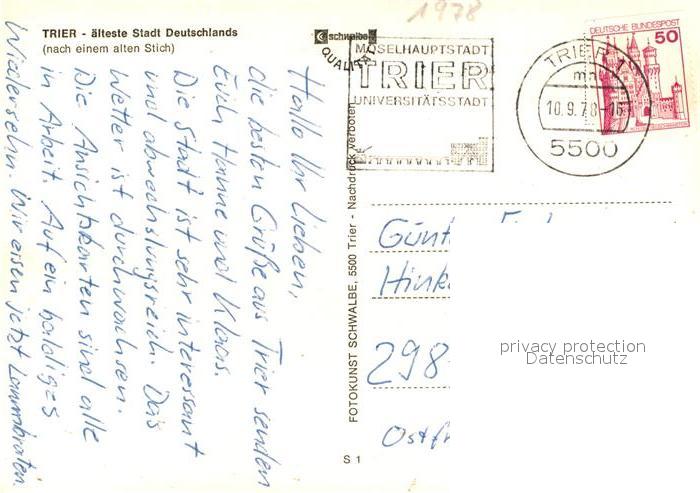 TRIER - älteste Stadt Deutschlands
(nach einem alten Stich)
schwalbe
QUALITÄT
1978
MOSELHAUPTSTADT
TRIER
UNIVERSITÄTSSTADT
TRIER 1
mn
10.9.78-16
5500
DEUTSCHE BUNDESPOST
50
Hallo Ihr Lieben,
die besten Grüße aus Trier senden
Euch Hanne und Klaas.
Die Stadt ist sehr interessant
und abwechslungsreich. Das
Wetter ist durchwachsen.
Die Ansichtskarten sind alle
in Arbeit. Auf ein baldiges
Wiedersehn. Wir essen jetzt Lammbraten.
FOTOKUNST SCHWALBE, 5500 Trier - Nachdruck verboten
S 1
Günt
Hink
298
Ostfr
privacy protection
Datenschutz